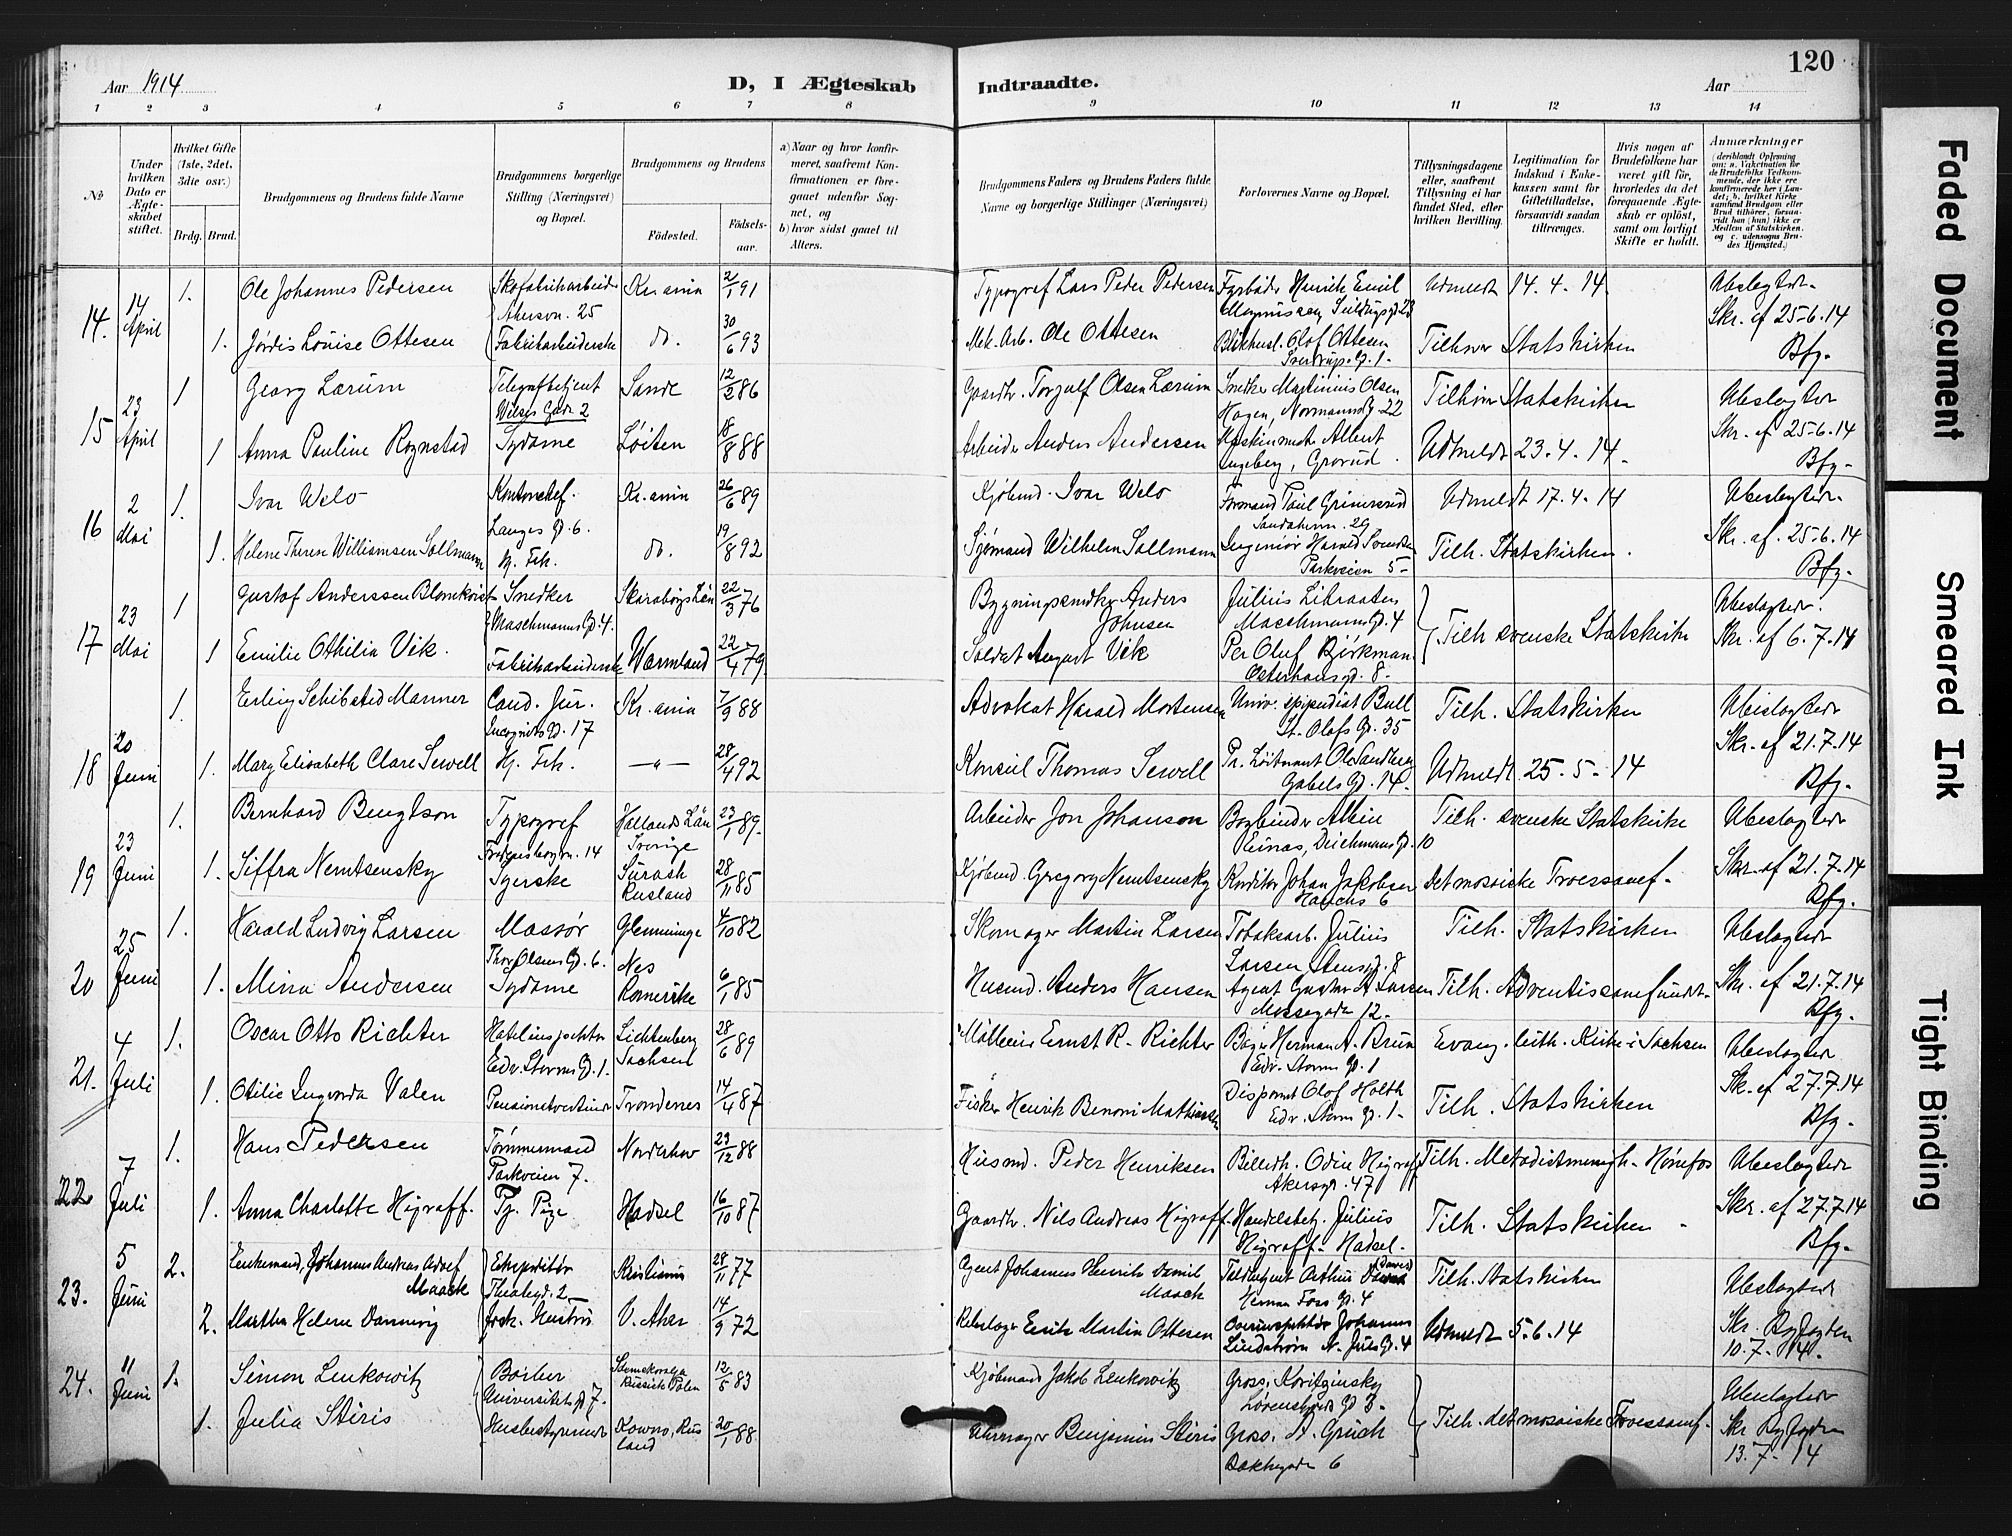 120
Aar 1914
D, I Ægteskab Indtraadte.
Aar
1 2 3 4 5 6 7 8 9 10 11 12 13 14
No
Under hvilken Dato er Ægteskabet stiftet.
Hvilket Gifte (1ste, 2det, 3die osv.)
Brdg. Brud.
Brudgommens og Brudens fulde Navne
Brudgommens borgerlige Stilling (Næringsvei) og Bopæl.
Brudgommens og Brudens
Fødested.
Fødselsaar.
a) Naar og hvor konfirmeret, saafremt Konfirmationen er foregaaet udenfor Sognet, og
b) hvor sidst gaaet til Alters.
Brudgommens Faders og Brudens Faders fulde Navne og borgerlige Stillinger (Næringsvei)
Forlovernes Navne og Bopæl.
Tillysningsdagene eller, saafremt Tillysning ei har fundet Sted, efter hvilken Bevilling.
Legitimation for Indskud i Enkekassen samt for Giftetilladelse, forsaavidt saadan tiltrænges.
Hvis nogen af Brudefolkene har været gift før, hvorledes da det foregaaende Ægteskab er opløst, samt om lovligt Skifte er holdt.
Anmærkninger
(deriblandt Oplysning om: a. Vakcination for de Brudefolks Vedkommende, der ikke ere konfirmerede her i Landet; b. hvilket Kirkesamfund Brudgom eller Brud tilhører, forsaavidt han (hun) ikke er Medlem af Statskirken, og c. udensogns Brudes Hjemsted.)
14. 14 April 1. Ole Johannes Pedersen Skofabrikarbeider 25 Kr.ania 2/1 91 Typograf Lars Peder Pedersen Fyrbøder Henrik Emil Udmeldt 14.4.14 Ubeslægtede
Skr. af 25-6.14
1. Jørdis Louise Ottesen Fabrikarbeiderske do. 30/6 93 Mek. Arb. Ole Ottesen Olof Ottesen Tilhører Statskirken Bfg.
15 23 April 1 Georg Lærum Telegrafbetjent 2 Sande 12/2 86 Gaardbr. Torgulf Olsen Lærum Snedker Martinius Olsen Hagen, Normannsg. 22 Tilhører Statskirken Ubeslægtede
1 Anna Pauline Rognstad Sydame Løiten 18/8 88 Arbeider Anders Andersen Albert Engeberg, Grorud Udmeldt 23.4.14. Skr. af 25-6.14
Bfg.
16 2 Mai 1. Ivar Welo Kontorchef. Langes G. 6. Kr.ania 26/6 89 Kjøbmd. Ivar Welo Formand Paul Grimsrud 29 Udmeldt 17.4.14 Ubeslægtede
1. Helene Therese Williamsen Sollmann Hj. Frk. do. 19/8 92 Sjømand Wilhelm Sollmann Ingeniør Harald Svendsen Parkveien 5 Tilh. Statskirken. Skr. af. 25-6.14
Bfg.
17 23 Mai 1 Gustof Anderssen Blomkvist Snedker Maschmanns G. 4. Skaraborgs Län 22/3 76 Bygningssnedker Anders Johnsen Julius Maschmanns G. 4 Tilh svenske Statskirke Ubeslægtede.
1 Emilie Othilia Vik Fabrikarbeiderske Wærmland 22/4 79. Soldat August Vik Per Oluf Björkman Østerhausgd. 8. Skr. af 6.7.14
18 20 Juni 1. Erling Schibsted Mamner Cand. Jur. Incognito G. 17 Kr.ania 7/9 88 Advokat Harald Mortensen Univ. stipendiat Bull St. Olafs G. 35 Tilh. Statskirken Ubeslægtede
1. Mary Elisabeth Clare Sewell Hj. Frk. —"— 28/4 92 Konsul Thomas Sewell Pr. Løitnant Ole Sandberg Gabels G. 14. Udmeldt 25.5-14 Skr. af 21.7.14
Bfg.
19 23 Juni 1. Bernhard Bengtson Typograf 14 Hallands Län Sverige 23/1 89. Arbeider Jon Johanson Bogbinder Albin Reinas, Deichmans G. 10 Tilh. svenske Statskirke Ubeslægtede
1. Siffra Nemtsensky Syerske Surash Rusland 28/11 85 Kjøbmd. Gregory Nemtsensky Konditor Johan Jakobsen Hauchs 6 Det mosaiske Troessamf. Skr. af 21.7.14
Bfg.
20 25 Juni 1. Harald Ludvig Larsen Massør Thor Olsens G. 6. Glemminge 4/10 82 Skomager Martin Larsen Tobaksarb. Julius Larsen, Stensgd. 8 Tilh. Statskirken Ubeslægtede
1. Mina Andersen Sydame Nes Romerike 6/1 85 Husmd. Anders Hansen Agent Gustav A Larsen Mossegade 12. Tilh. Adventissamfundet. Skr. af 21.7.14
Bfg.
21. 4 Juli 1. Oscar Otto Richter Edv. Storms G. 1. Lichtenberg Sachsen 28/6 89 Mølleeier Ernst R. Richter Bager Herman A. Bruun Edv. Storms G. 1 Evang. luth. Kirke i Sachsen Ubeslægtede
1. Otilie Ingvarda Valen Trondenes 14/4 87 Fisker Henrik Benoni Mathisen Disponent Olof Holth Edv. Storms gd. 1 Tilh. Statskirken Sk. af 27.7.14
Bfg.
22 7 Juli 1. Hans Pedersen Tømmermand Parkveien 7. Norderhov 23/12 88 Husmd. Peder Henriksen Odin Høgraff Akersgd. 47 Tilh. Metodistmenigh. Hønefos Ubeslægtede
1. Anna Charlotte Høgraff. Tj. Pige Hadsel 16/10 87 Gaardbr. Nils Andreas Høgraff Handelsbetj. Julius Høgraff Hadsel. Tilh. Statskirken Skr. af 27.7.14
Bfg.
23. 5 Juni 2. Enkemand, Johannes Andreas Adolf Maack Ekspeditør Thvalegd. 2 Kristiania 28/11 77 Agent Johannes Henrik Daniel Maack Arthur Herman Foss G. 4 Tilh. Statskirken Ubeslægtede
2. Martha Helene Dannevig Frsk. Hustru V. Aker 14/9 72 Rebslager Erik Martin Ottesen Johannes Lindstrøm N. Juels G. 4 Udmeldt 5.6.14 Skr. Byfogden
10.7.14.
24. 11 Juni 1. Simon Lenkowitz Barber Universitets gd 7. 12/5 83 Kjøbmand Jakob Lenkowitz Gross. Koritzinsky 3 Tilh. det mosaiske Troessamf. Ubeslægtede
1. Julia Stiris Husbestyrerinde Kowno, Rusland 20/1 88 Uhrmager Benjamin Stiris Gross. A. Grüsch Bakkegaden 6 Skr Byfogden
13.7.14
Faded Document
Smeared Ink
Tight Binding